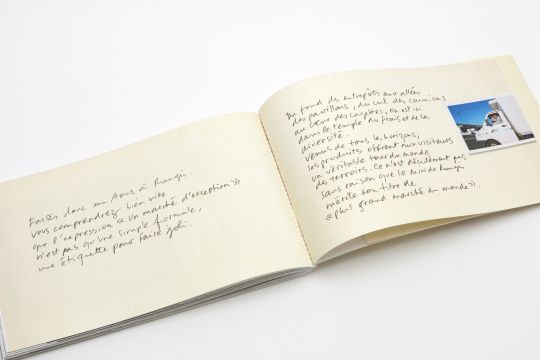 Faites donc un tour à Rungis :
vous comprendrez bien vite
que l'expression « un marché d'exception »
n'est pas qu'une simple formule,
une étiquette pour faire joli.
Du fond des entrepôts aux allées
des pavillons, du cul des camions
au cœur des cagettes, on est ici
dans le temple du frais et de la
diversité.
Venus de tous les horizons,
les produits offrent aux visiteurs
un véritable tour du monde
des terroirs. Ce n'est décidément pas
sans raison que le Min de Rungis
mérite son titre de
« plus grand marché du monde ».